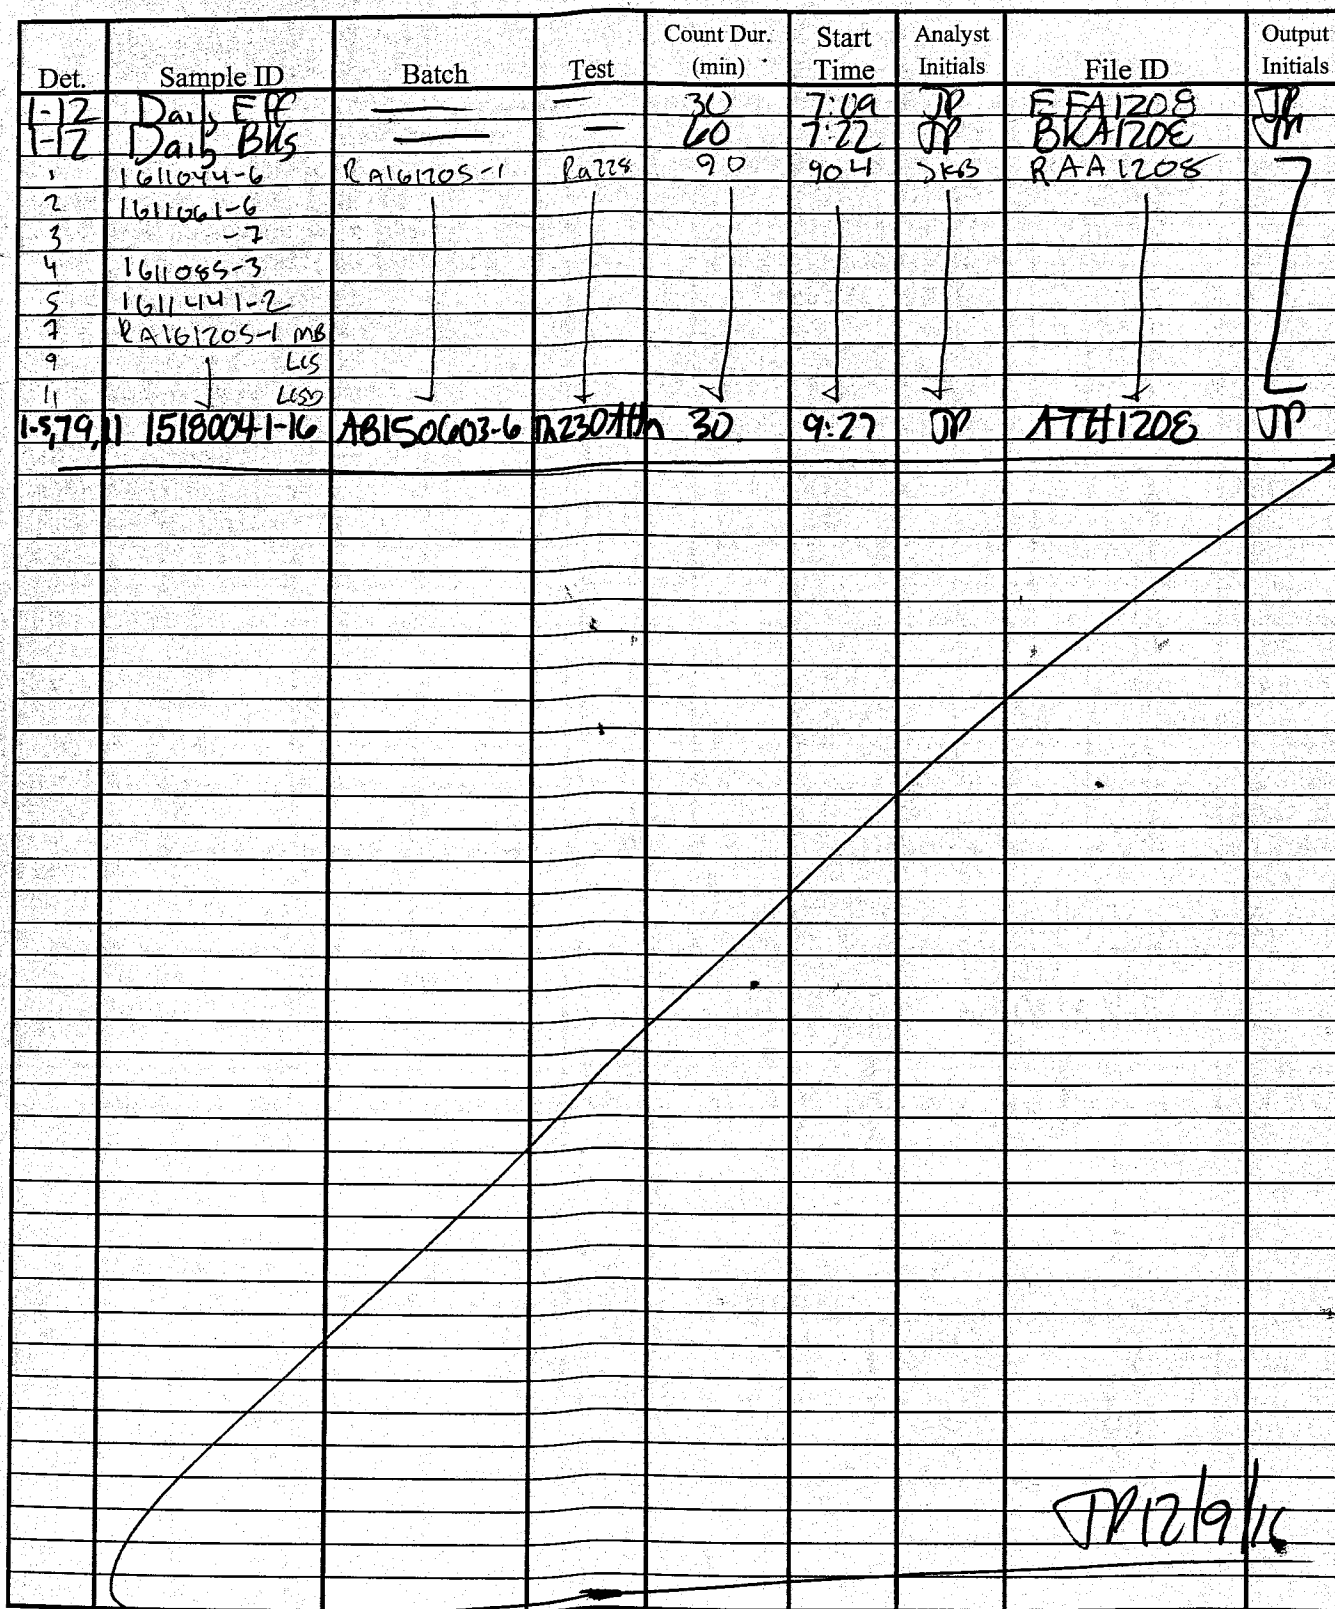 Det. Sample ID Batch Test Count Dur. (min) Start Time Analyst Initials File ID Output Initials
1-12 Daily Eff — — 30 7:09 JP EFA1208 JP
1-12 Daily Bks — — 60 7:22 JP BKA1208 JP
1 1611044-6 RA161205-1 Ra228 90 904 DKB RAA1208
2 1611061-6
3 -7
4 1611085-3
5 1611441-2
7 RA161205-1 MB
9 LCS
11 LCSD
1-5,7,9,11 1518004-1-16 AB150603-6 30 9:27 JP ATH1208 JP
JP 12/9/16